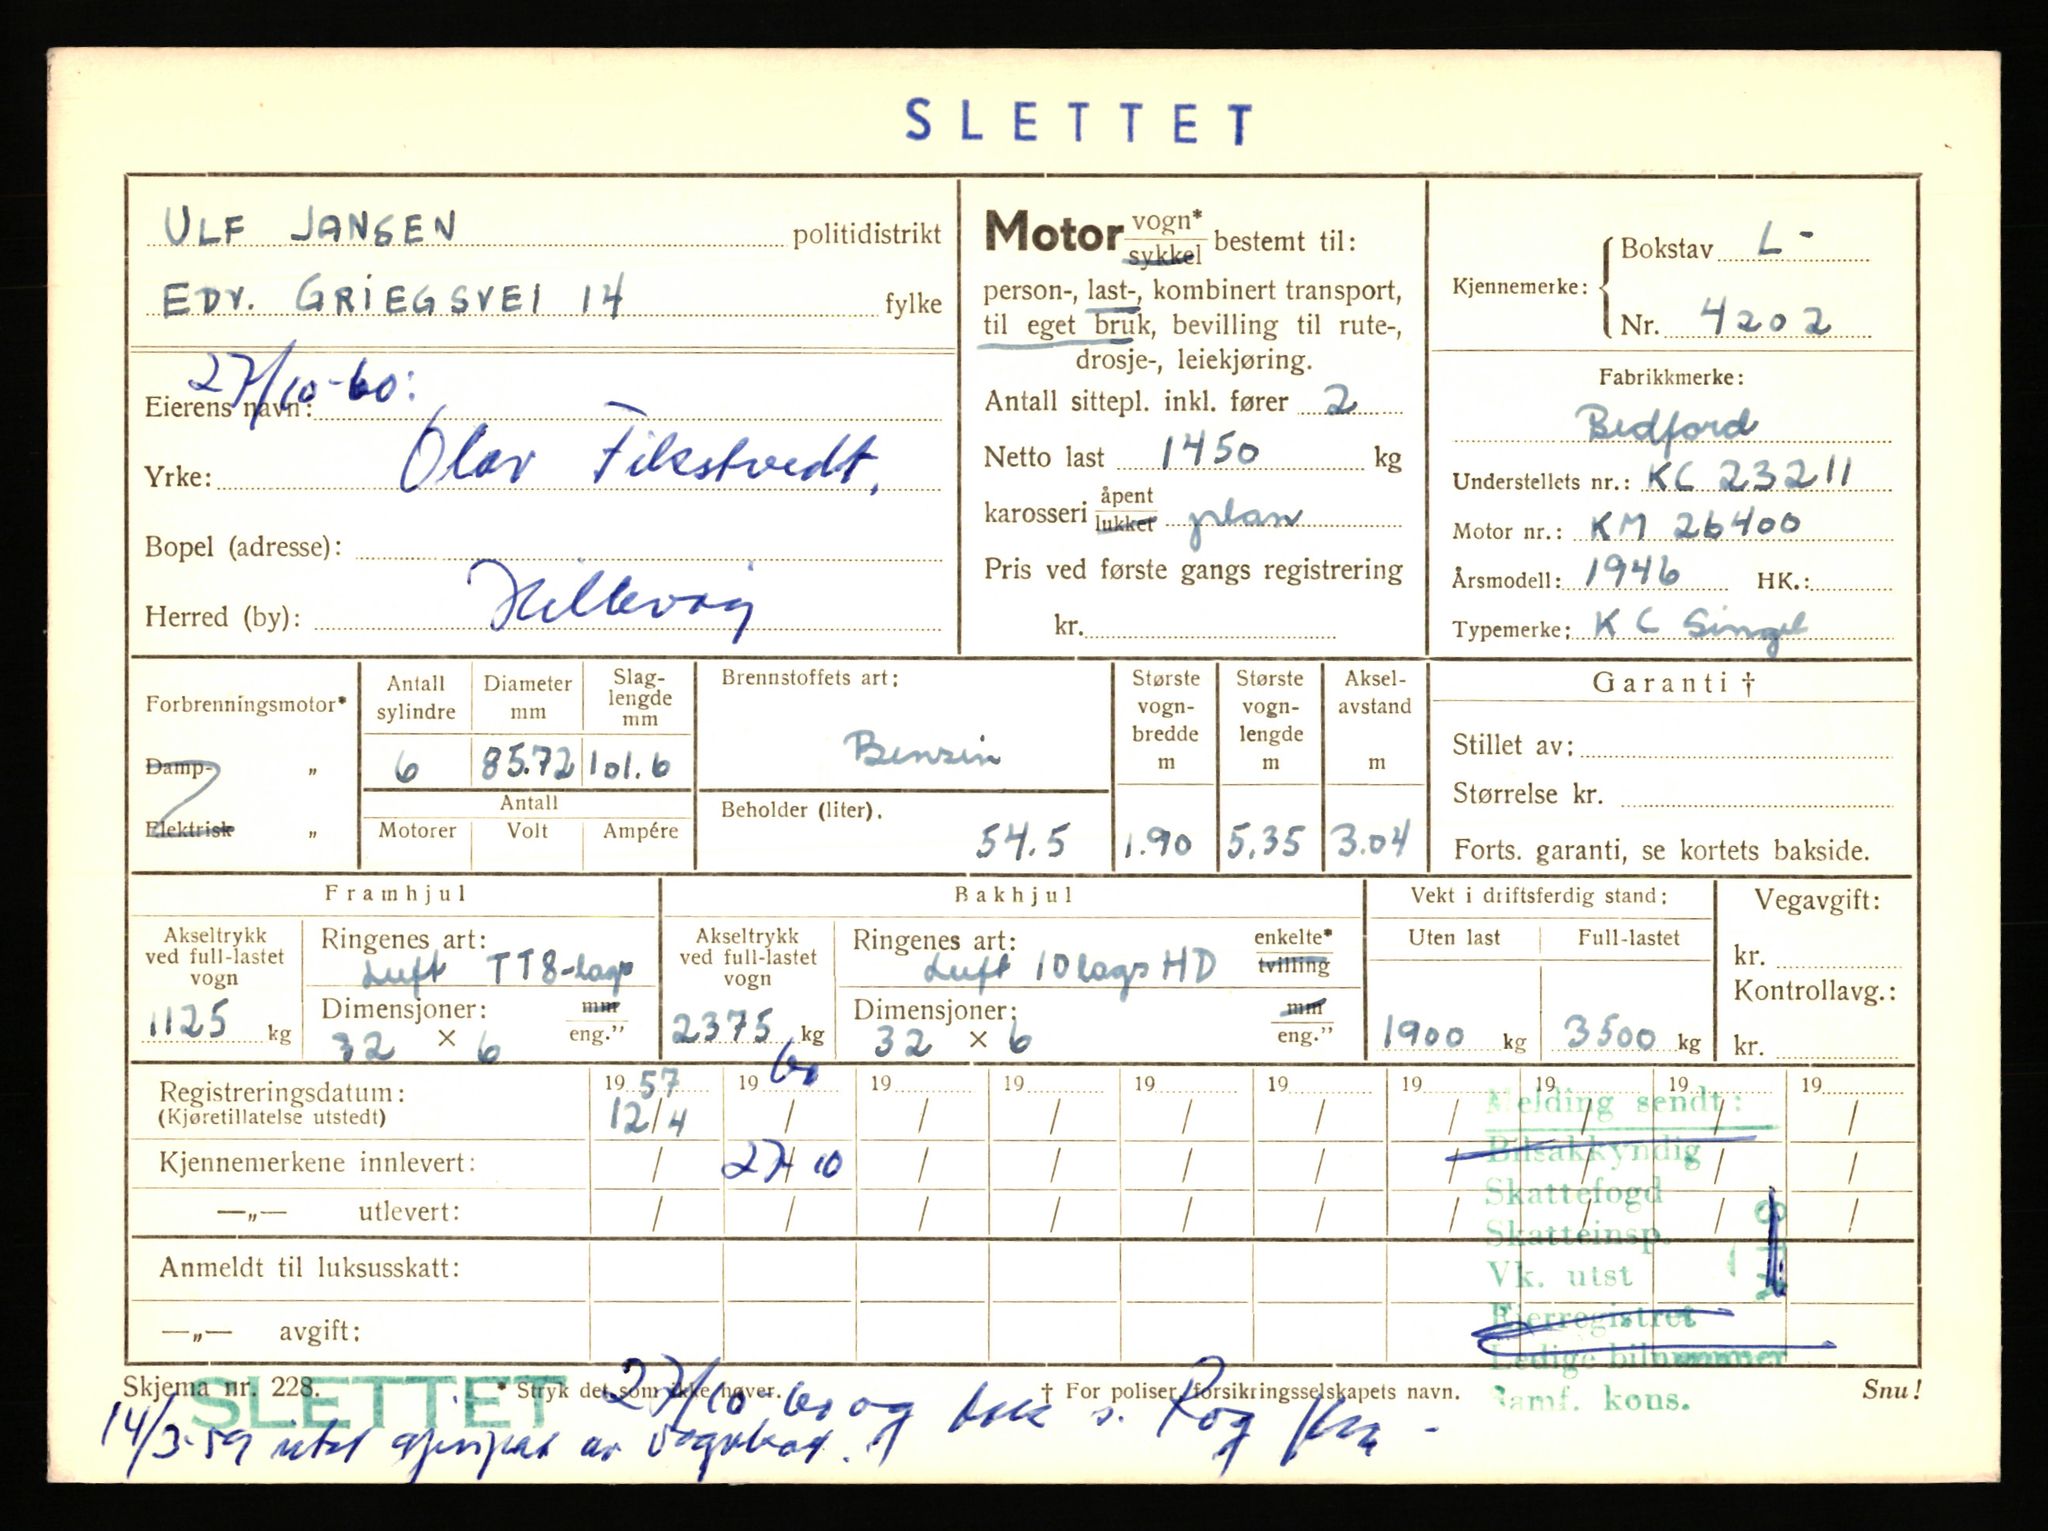 SLETTET
ULF JANSEN politidistrikt
EDV. GRIEGSVEI 14 fylke
27/10-60:
Eierens navn:
Olav Filkstvedt,
Yrke:
Bopel (adresse):
Hillevåg
Herred (by):
Motor vogn* sykkel bestemt til:
person-, last-, kombinert transport,
til eget bruk, bevilling til rute-,
drosje-, leiekjøring.
Antall sittepl. inkl. fører 2
Netto last 1450 kg
karosseri åpent lukket plan
Pris ved første gangs registrering
kr.
Kjennemerke: Bokstav L-
Nr. 4202
Fabrikkmerke:
Bedford
Understellets nr.: KC 23211
Motor nr.: KM 26400
Årsmodell: 1946 HK.:
Typemerke: KC Singel
Forbrenningsmotor*
Damp- „
Elektrisk „
Antall sylindre
6
Diameter mm
85.72
Slag-lengde mm
101.6
Antall
Motorer Volt Ampére
Brennstoffets art:
Bensin
Beholder (liter).
54.5
Største vogn-bredde m
1.90
Største vogn-lengde m
5,35
Aksel-avstand m
3.04
Garanti †
Stillet av:
Størrelse kr.
Forts. garanti, se kortets bakside.
Framhjul
Akseltrykk ved full-lastet vogn
1125 kg
Ringenes art:
Luft TT8-lags
Dimensjoner: mm
32 × 6 eng.”
Bakhjul
Akseltrykk ved full-lastet vogn
2375 kg
Ringenes art: enkelte*
Luft 10lags HD tvilling
Dimensjoner: mm
32 × 6 eng.”
Vekt i driftsferdig stand:
Uten last Full-lastet
1900 kg 3500 kg
Vegavgift:
kr.
Kontrollavg.:
kr.
Registreringsdatum: 19 57 19 60 19 19 19 19 19 19 19 19
(Kjøretillatelse utstedt) 12/4 / / / / / / / / /
Kjennemerkene innlevert: / 27/10 / / / / / / / /
—„— utlevert: / / / / / / / / / /
Anmeldt til luksusskatt:
—„— avgift:
Melding sendt:
Bilsakkyndig
Skattefogd
Skatteinsp.
Vk. utst
Eierregistret
Ledige bilnummer
Samf. kons.
Skjema nr. 228. * Stryk det som ikke høver. † For poliser, forsikringsselskapets navn. Snu!
SLETTET
27/10-60 og
14/3-59 utst gjenpat av vognkort.